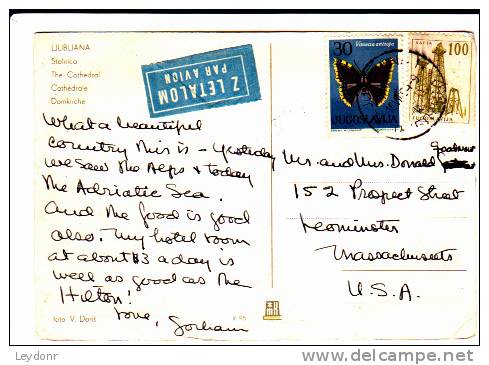 LJUBLJANA
Stolnica
The Cathedral
Cathédrale
Domkirche
Z LETALOM
PAR AVION
30
Vanessa antiopa
JUGOSLAVIJA
NAFTA
100
JUGOSLAVIJA
What a beautiful
country this is – yesterday
we saw the Alps & today
the Adriatic Sea.
And the food is good
also. My hotel room
at about $3 a day is
well as good as the
Hilton!
Love, Gorham
Mr. and Mrs. Donald
152 Prospect Street
Leominster
Massachusetts
U.S.A.
foto V. Doriš
Leydonr
delcampe.net